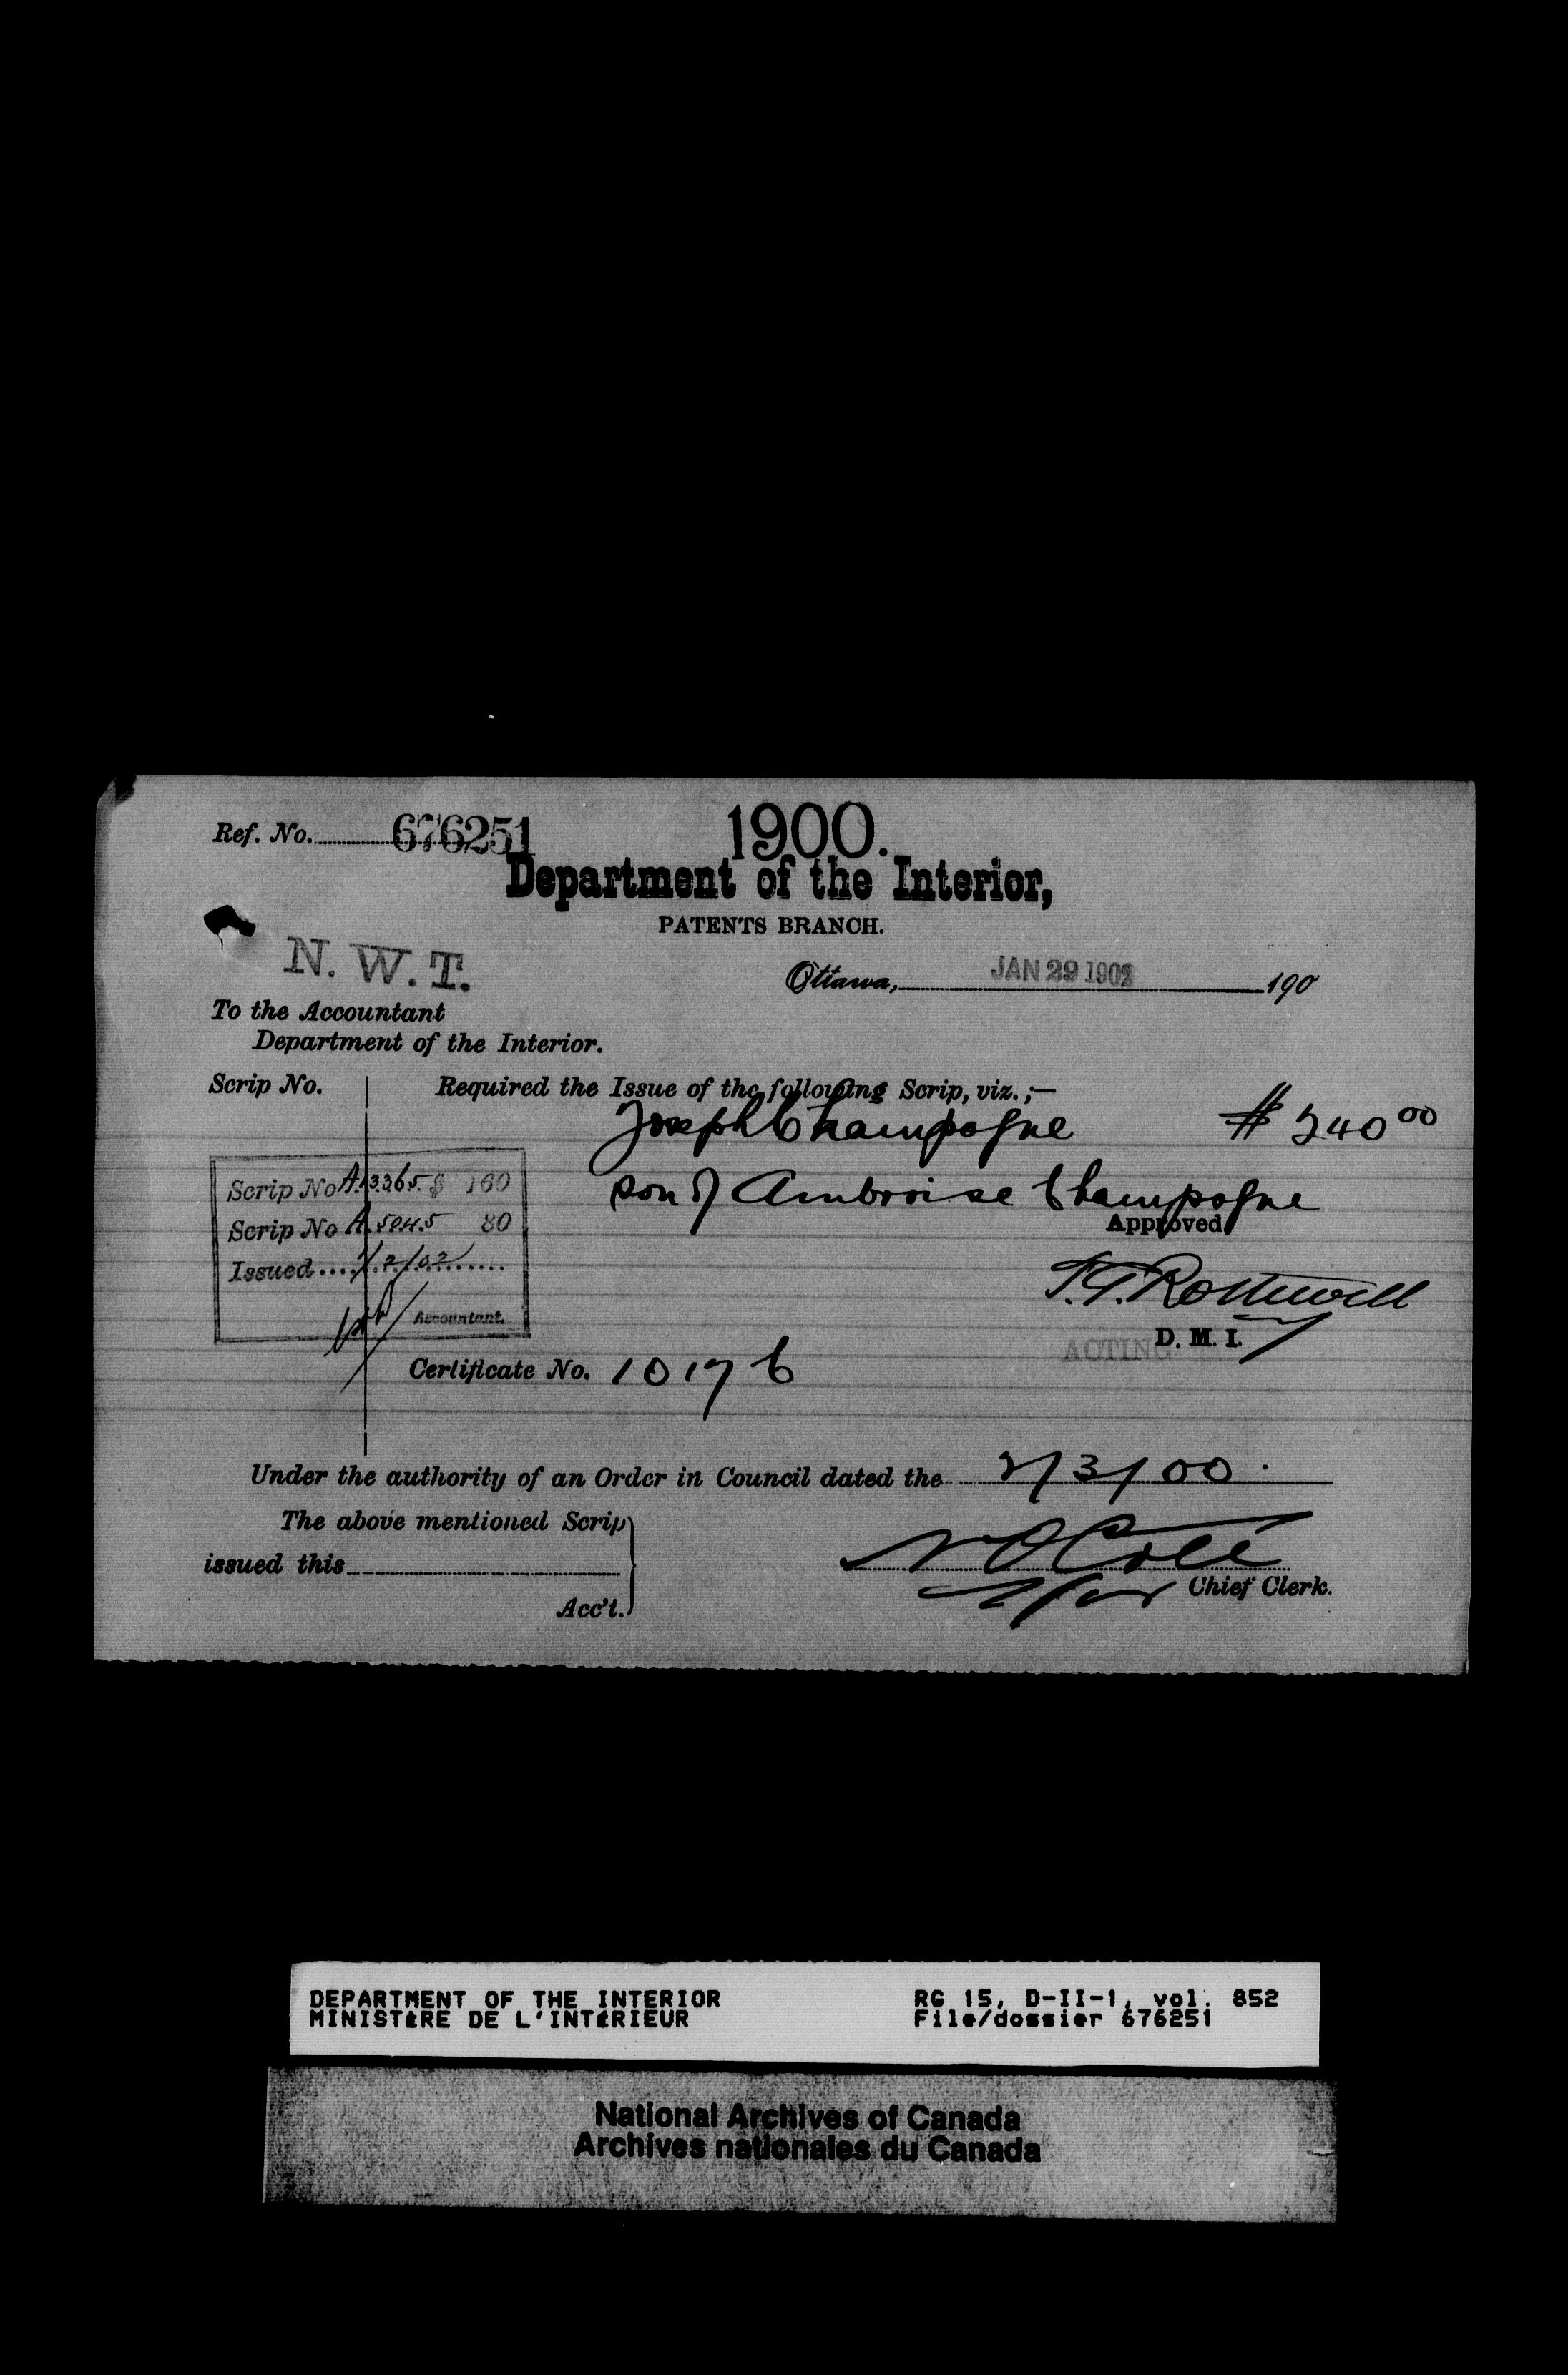 Ref. No. 676251 1900.
Department of the Interior,
PATENTS BRANCH.
N. W. T.
Ottawa, JAN 29 1902 190
To the Accountant
Department of the Interior.
Scrip No. Required the Issue of the following Scrip, viz.;—
Joseph Champagne # 240 00
Scrip No A.13365 $ 160
son of Ambroise Champagne
Scrip No A.5045 80
Approved
Issued.... 1/2/02
T.G. Rothwell
Accountant.
ACTING D. M. I.
Certificate No. 10176
Under the authority of an Order in Council dated the 2/3/00.
The above mentioned Scrip
issued this
N O Coté
Chief Clerk.
Acc't.
DEPARTMENT OF THE INTERIOR RG 15, D-II-1, vol. 852
MINISTÈRE DE L'INTÉRIEUR File/dossier 676251
National Archives of Canada
Archives nationales du Canada